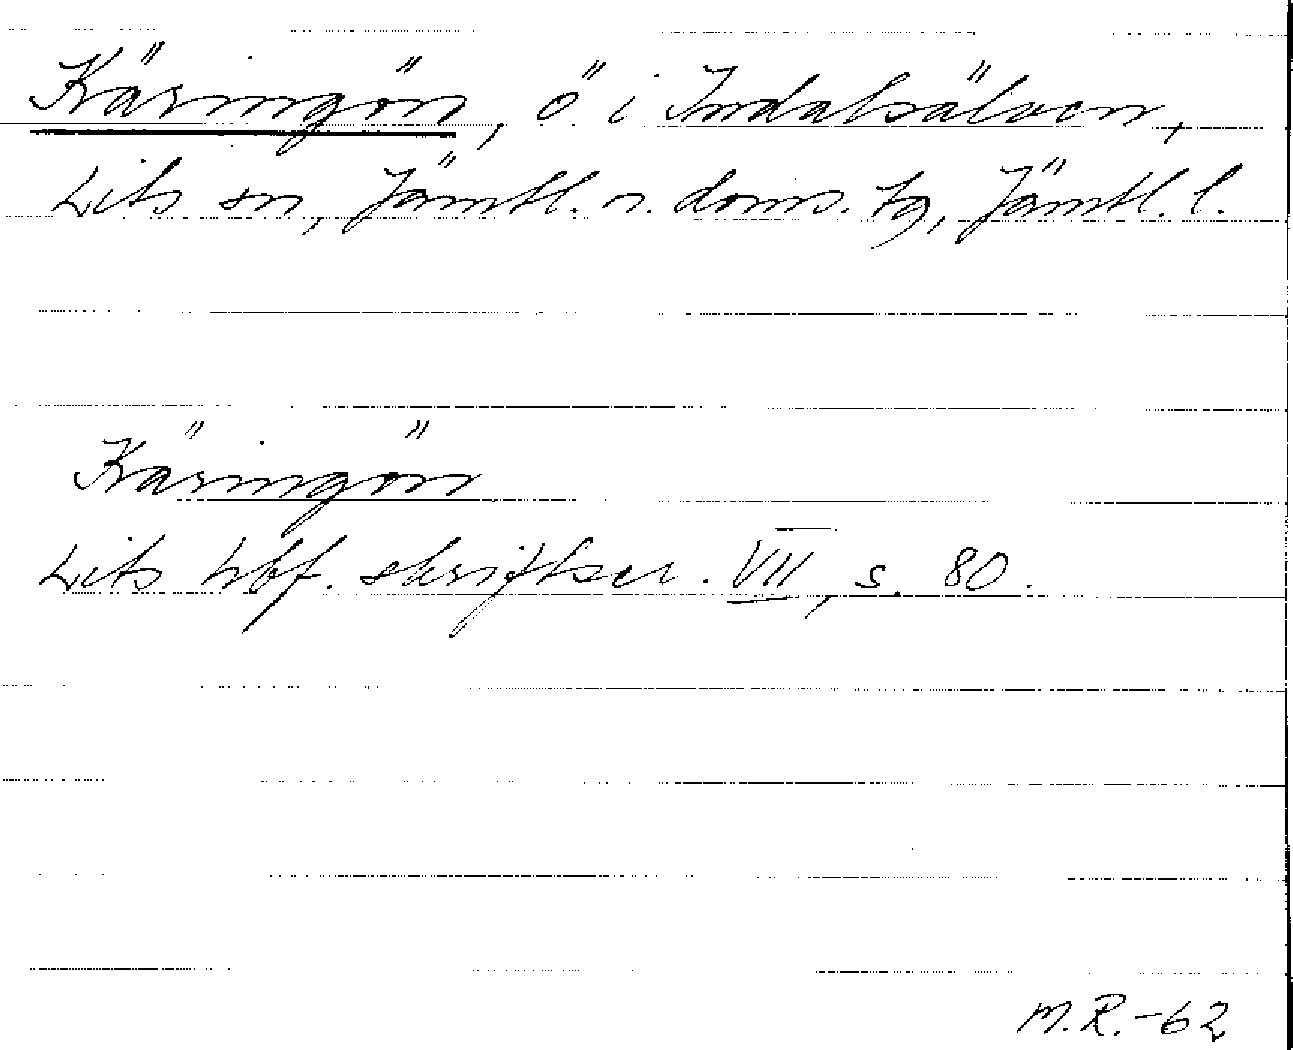 Käringön, ö i Indalsälven,
Lits sn, Jämtl. n. doms. tg, Jämtl. l.
Käringön
Lits hbf. skriftser. VII, s. 80.
M.R.-62